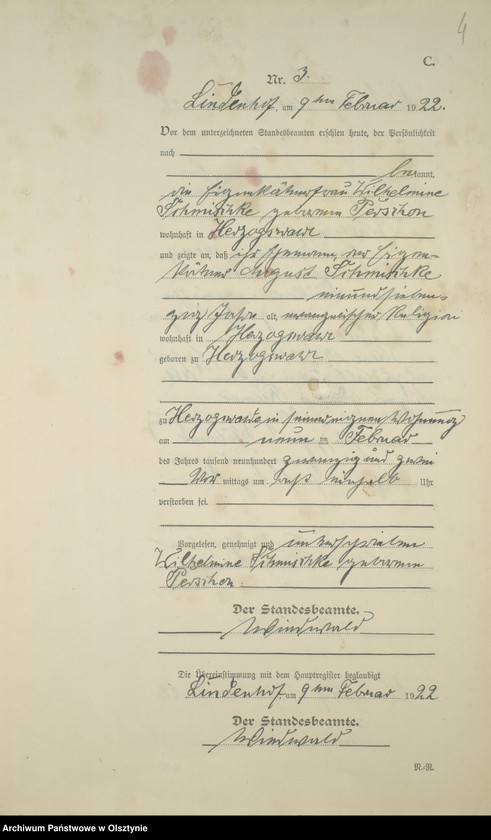 4
C.
Nr. 3.
Lindenhof, am 9ten Februar 1922.
Vor dem unterzeichneten Standesbeamten erschien heute, der Persönlichkeit
nach
bekannt,
die Eigenkätnerfrau Wilhelmine
Schmischke geborene Perschon
wohnhaft in Herzogswalde
und zeigte an, daß ihr Ehemann, der Eigen-
kätner August Schmischke
einundsieben-
zig Jahre alt, evangelischer Religion
wohnhaft in Herzogswalde
geboren zu Herzogswalde
zu Herzogswalde in seiner eignen Wohnung
am neun ten Februar
des Jahres tausend neunhundert zwanzig und zwei
Vor mittags um einhalb Uhr
verstorben sei.
Vorgelesen, genehmigt und unterschrieben
Wilhelmine Schmischke geborene
Perschon.
Der Standesbeamte.
Windwald
Die Übereinstimmung mit dem Hauptregister beglaubigt
Lindenhof, am 9ten Februar 1922
Der Standesbeamte.
Windwald
N.-N.
Archiwum Państwowe w Olsztynie